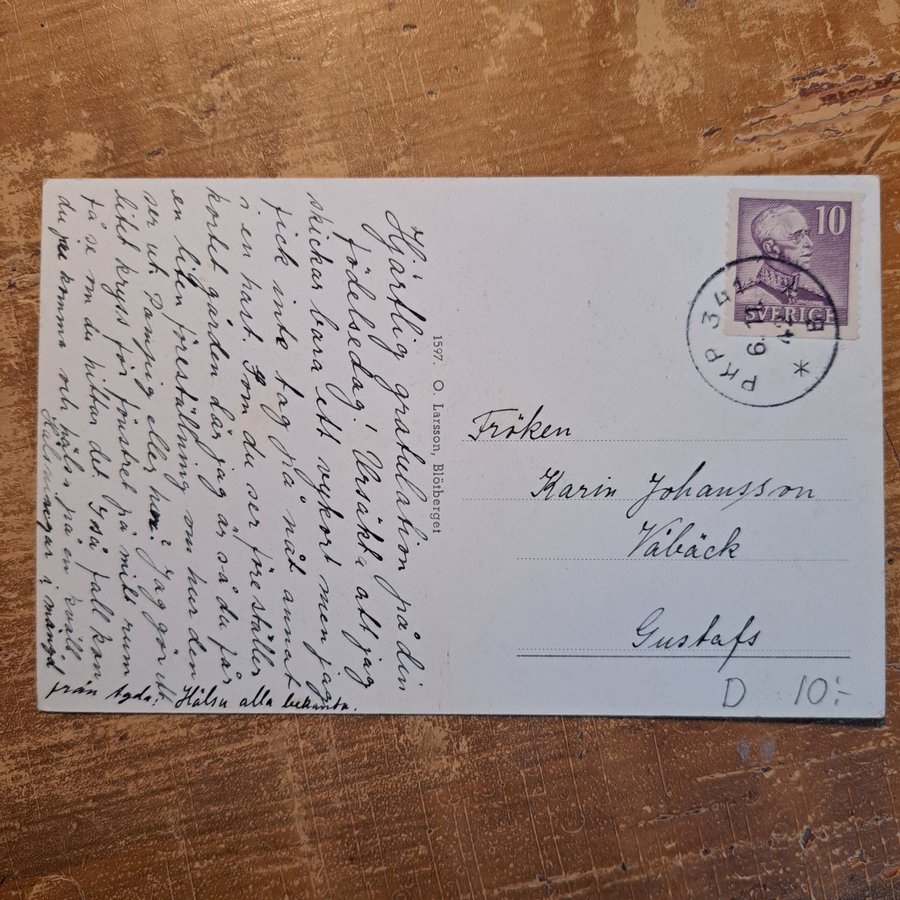 Hjärtlig gratulation på din
födelsedag! Ursäkta att jag
skickar bara ett vykort men jag
fick inte tag på nåt annat
i en hast. Som du ser föreställer
kortet gården där jag är så du får
en liten föreställning om hur den
ser ut. Pampig eller hur? Jag gör ett
litet kryss för fönstret på mitt rum
få se om du hittar det. I så fall kan
du ju komma och hälsa på en kväll.
Hälsningar i mängd
från Agda. Hälsa alla bekanta.
1597. O. Larsson, Blötberget
10
SVERIGE
PKP 341 B
6.12.
Fröken
Karin Johansson
Våbäck
Gustafs
D 10:-